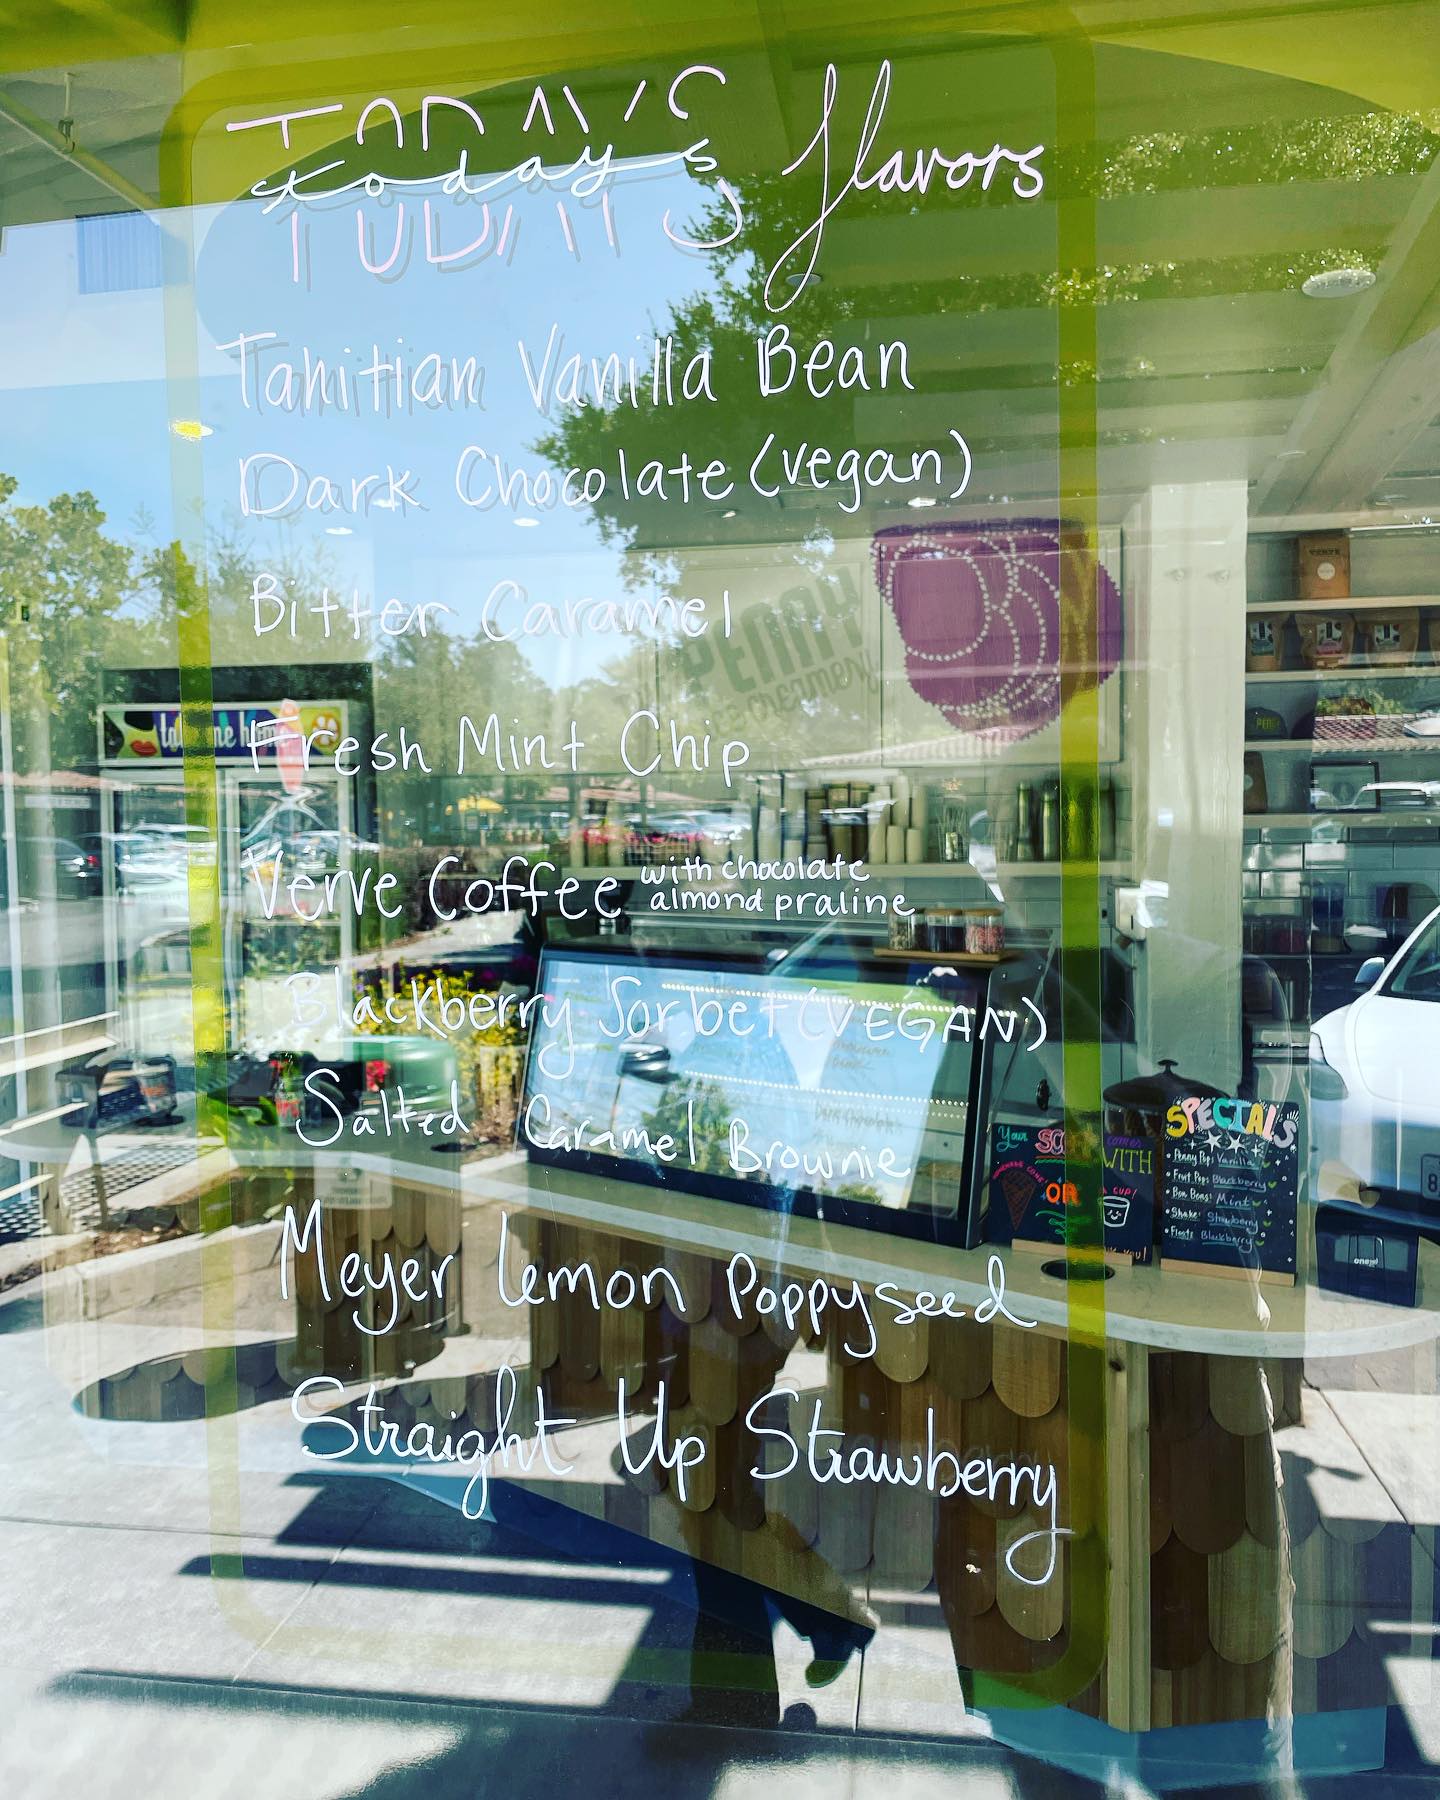 TODAY'S
today's flavors
Tahitian Vanilla Bean
Dark Chocolate (vegan)
Bitter Caramel
THE PENNY
ICE CREAMERY
take me home
Fresh Mint Chip
Verve Coffee with chocolate
almond praline
Blackberry Sorbet (VEGAN)
Salted Caramel Brownie
Meyer Lemon Poppyseed
Straight Up Strawberry
Your SCOOP comes
WITH
HOMEMADE CONE
OR
A CUP!
SPECIALS
• Penny Pops: Vanilla
• Fruit Pops: Blackberry
• Bon Bons: Mint
• Shake: Strawberry
• Float: Blackberry